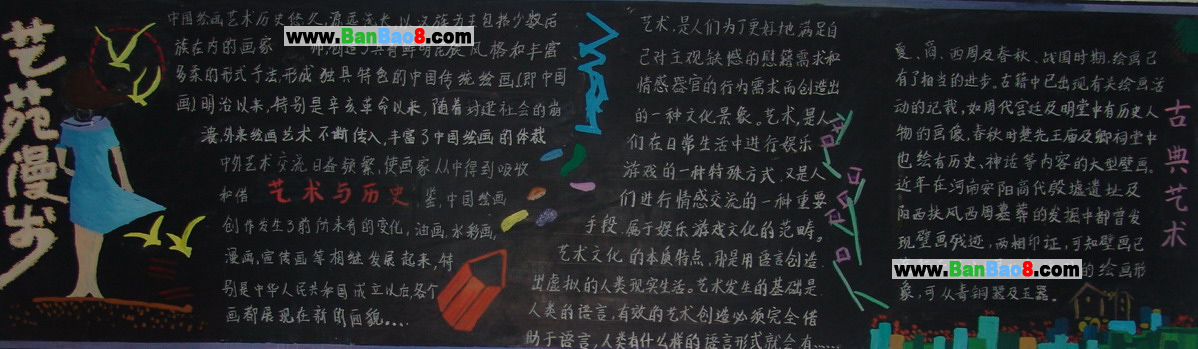 艺苑漫步
中国绘画艺术历史悠久,源远流长,以汉族为主包括少数民
族在内的画家
风格和丰富
多采的形式手法,形成独具特色的中国传统绘画[即中国
画]明治以来,特别是辛亥革命以来,随着封建社会的崩
溃,外来绘画艺术不断传入,丰富了中国绘画的体裁
中外艺术交流日益频繁,使画家从中得到吸收
和借 鉴,中国绘画
艺术与历史
创作发生了前所未有的变化,油画,水彩画,
漫画,宣传画等相继发展起来,特
别是中华人民共和国成立以后,各个
画都展现在新的面貌....
www.BanBao8.com
艺术,是人们为了更好地满足自
己对主观缺憾的慰籍需求和
情感器官的行为需求而创造出
的一种文化景象。艺术,是人
们在日常生活中进行娱乐
游戏的一种特殊方式,又是人
们进行情感交流的一种重要
手段,属于娱乐游戏文化的范畴。
艺术文化的本质特点,那是用语言创造
出虚拟的人类现实生活。艺术发生的基础是
人类的语言,有效的艺术创造必须完全借
助于语言,人类有什么样的语言形式就会有......
夏、商、西周及春秋、战国时期,绘画已
有了相当的进步。古籍中已出现有关绘画活
动的记载,如周代宫廷及明堂中有历史人
物的画像,春秋时楚先王庙及卿祠堂中
也绘有历史、神话等内容的大型壁画。
近年在河南安阳商代殷墟遗址及
陕西扶风西周墓葬的发掘中都曾发
现壁画残迹,两相印证,可知壁画已
的绘画形
象,可从青铜器及玉器。
www.BanBao8.com
古典艺术